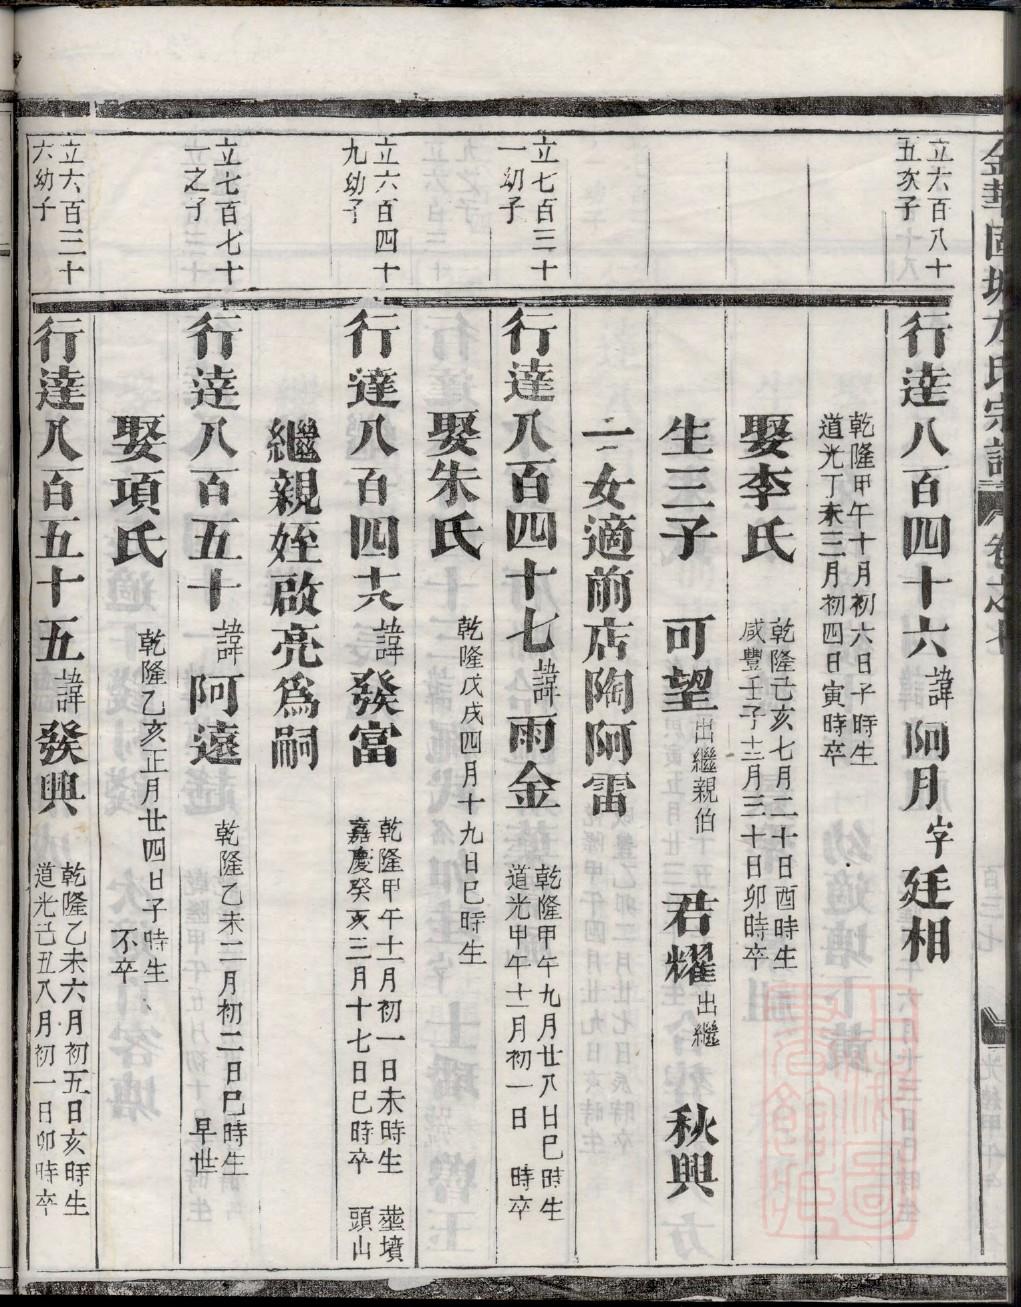 立六百八十
五次子
行達八百四十六諱阿月字廷相
乾隆甲午十月初六日子時生
道光丁未三月初四日寅時卒
娶李氏
乾隆己亥七月二十日酉時生
咸豐壬子十二月三十日卯時卒
生三子 可望出繼親伯 君耀出繼 秋興
一女適前店陶阿雷
立七百三十
一幼子
行達八百四十七諱雨金
乾隆甲午九月廿八日巳時生
道光甲午十二月初一日 時卒
娶朱氏
乾隆戊戌四月十九日巳時生
立六百四十
九幼子
行達八百四十八諱發富
乾隆甲午十一月初一日未時生
嘉慶癸亥三月十七日巳時卒
塟墳
頭山
繼親姪啟亮為嗣
立七百七十
一之子
行達八百五十一諱阿遠
乾隆乙未二月初二日巳時生
早世
娶項氏
乾隆乙亥正月廿四日子時生
不卒
立六百三十
六幼子
行達八百五十五諱發興
乾隆乙未六月初五日亥時生
道光己丑八月初一日卯時卒